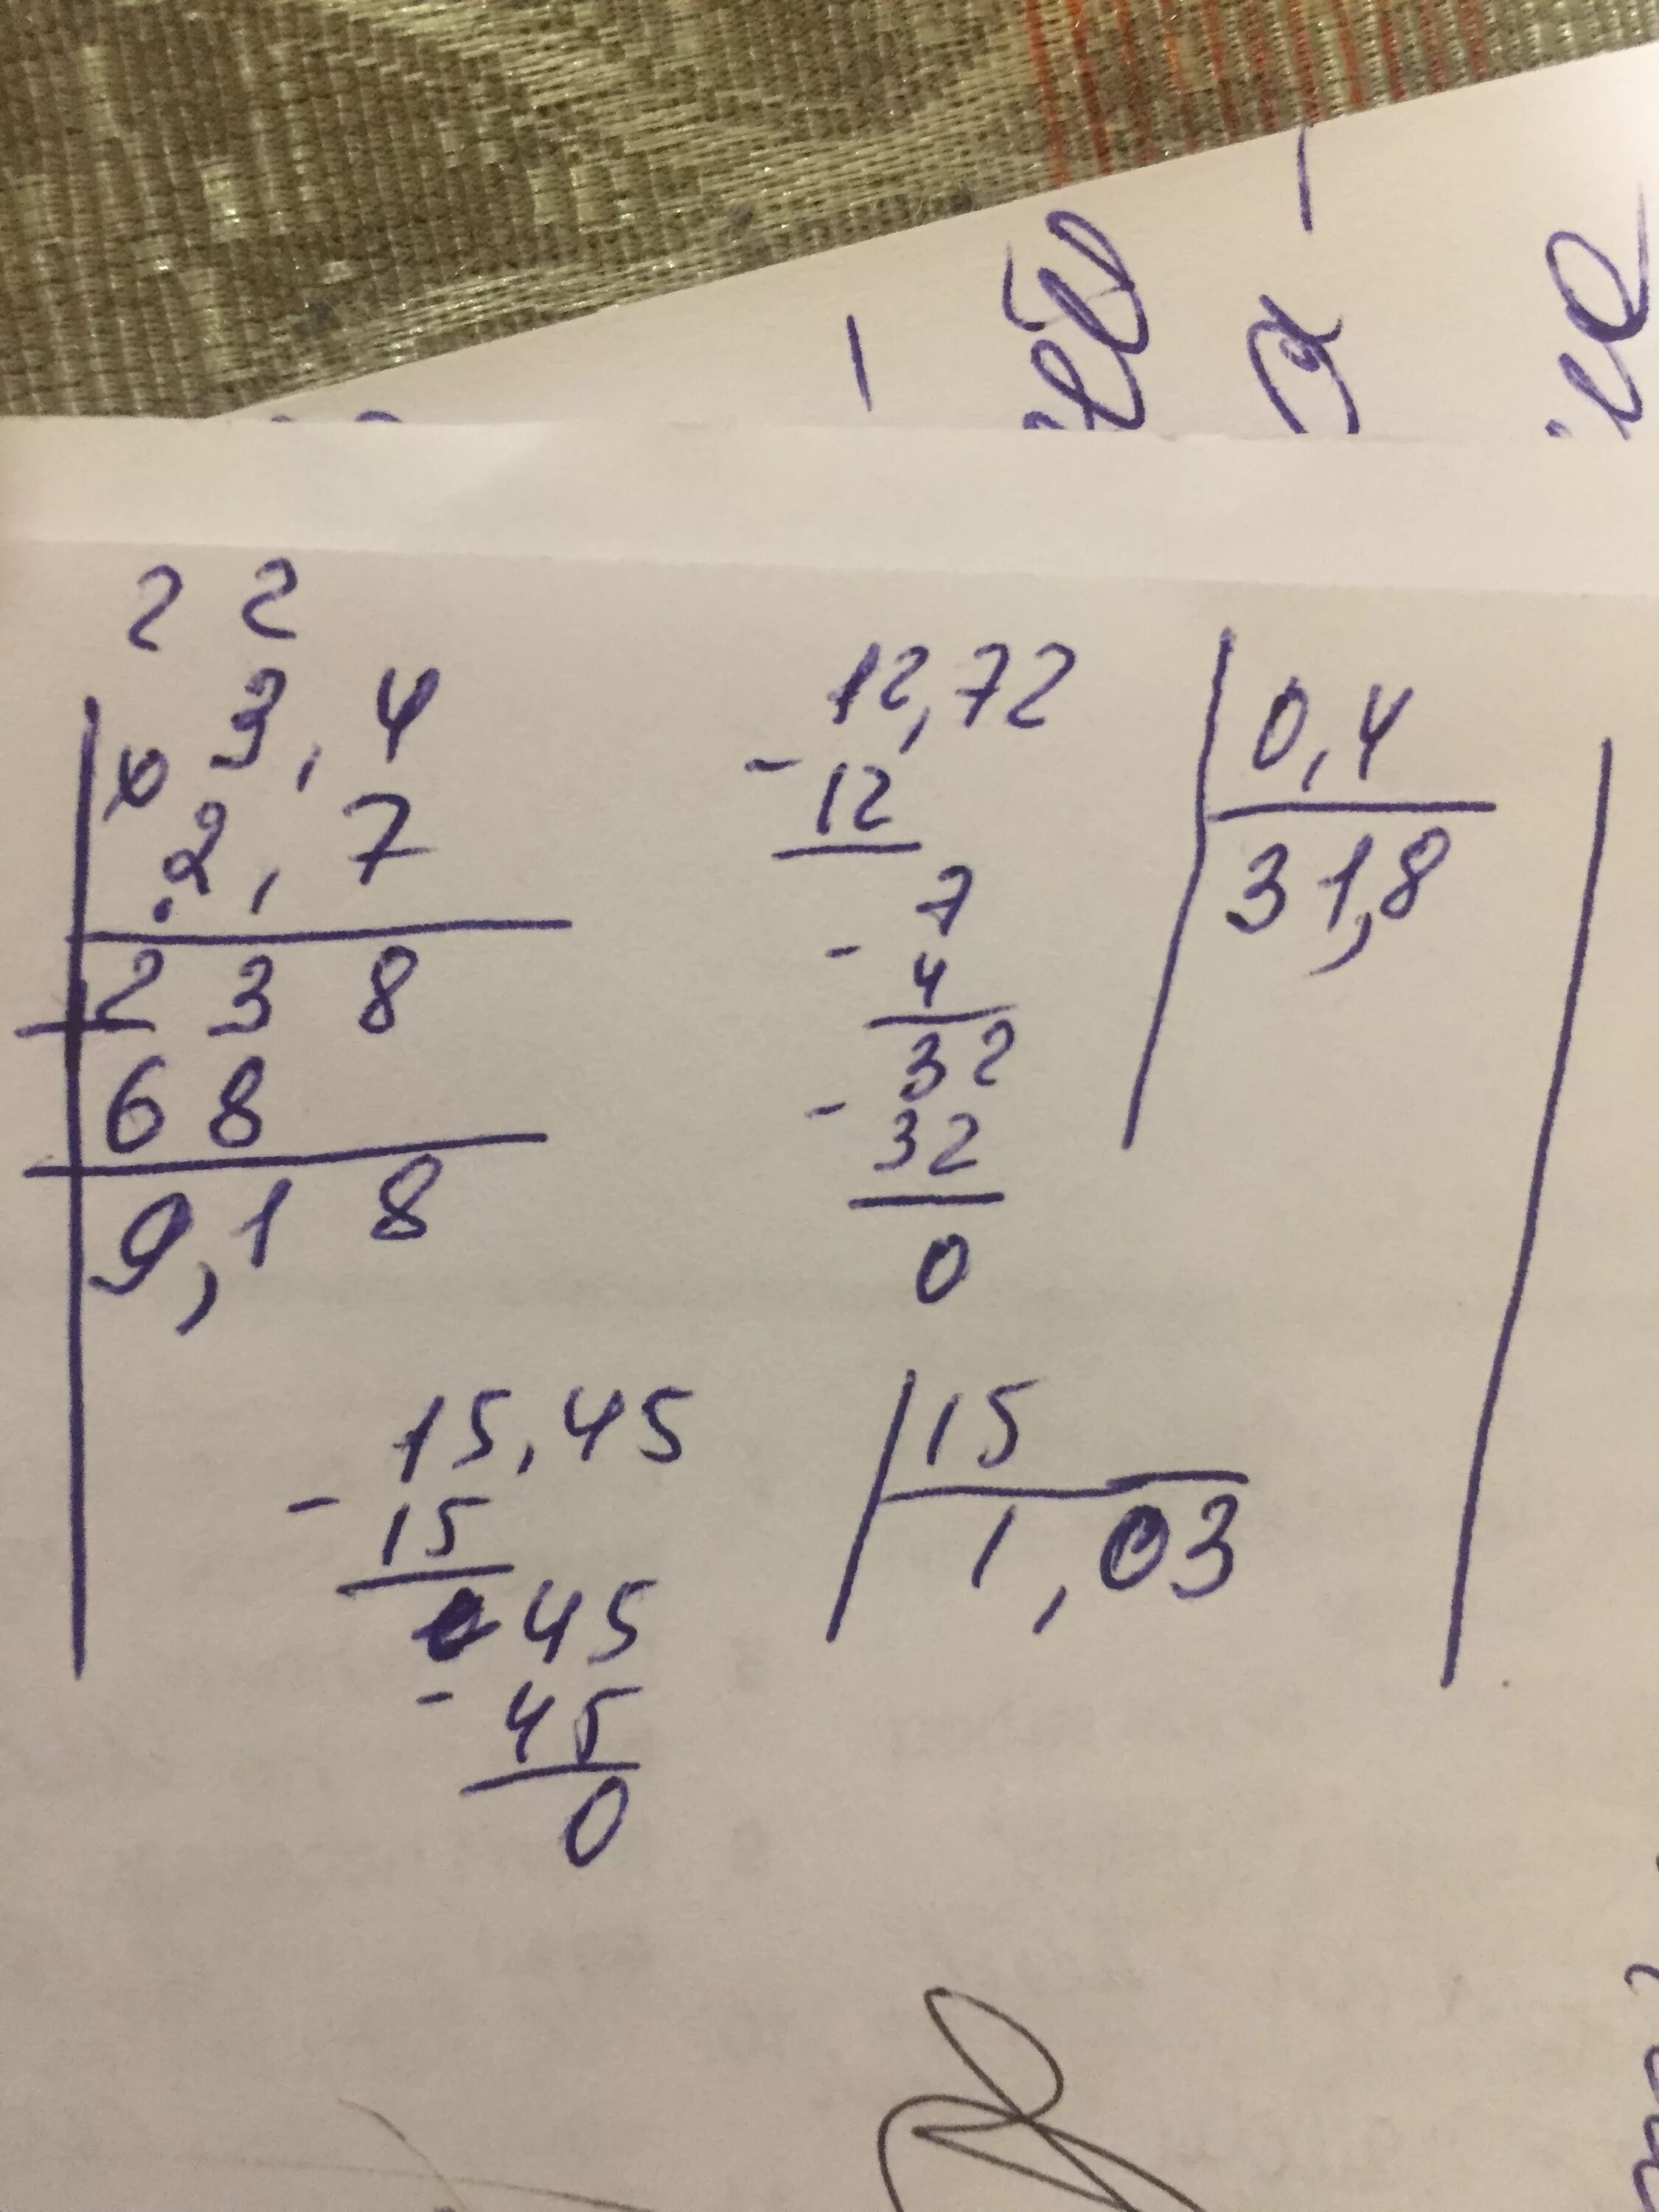 2 2
3,4
x
2,7
238
+
68
9,18
12,72 | 0,4
- 12
31,8
7
- 4
32
- 32
0
15,45 | 15
- 15
1,03
45
- 45
0